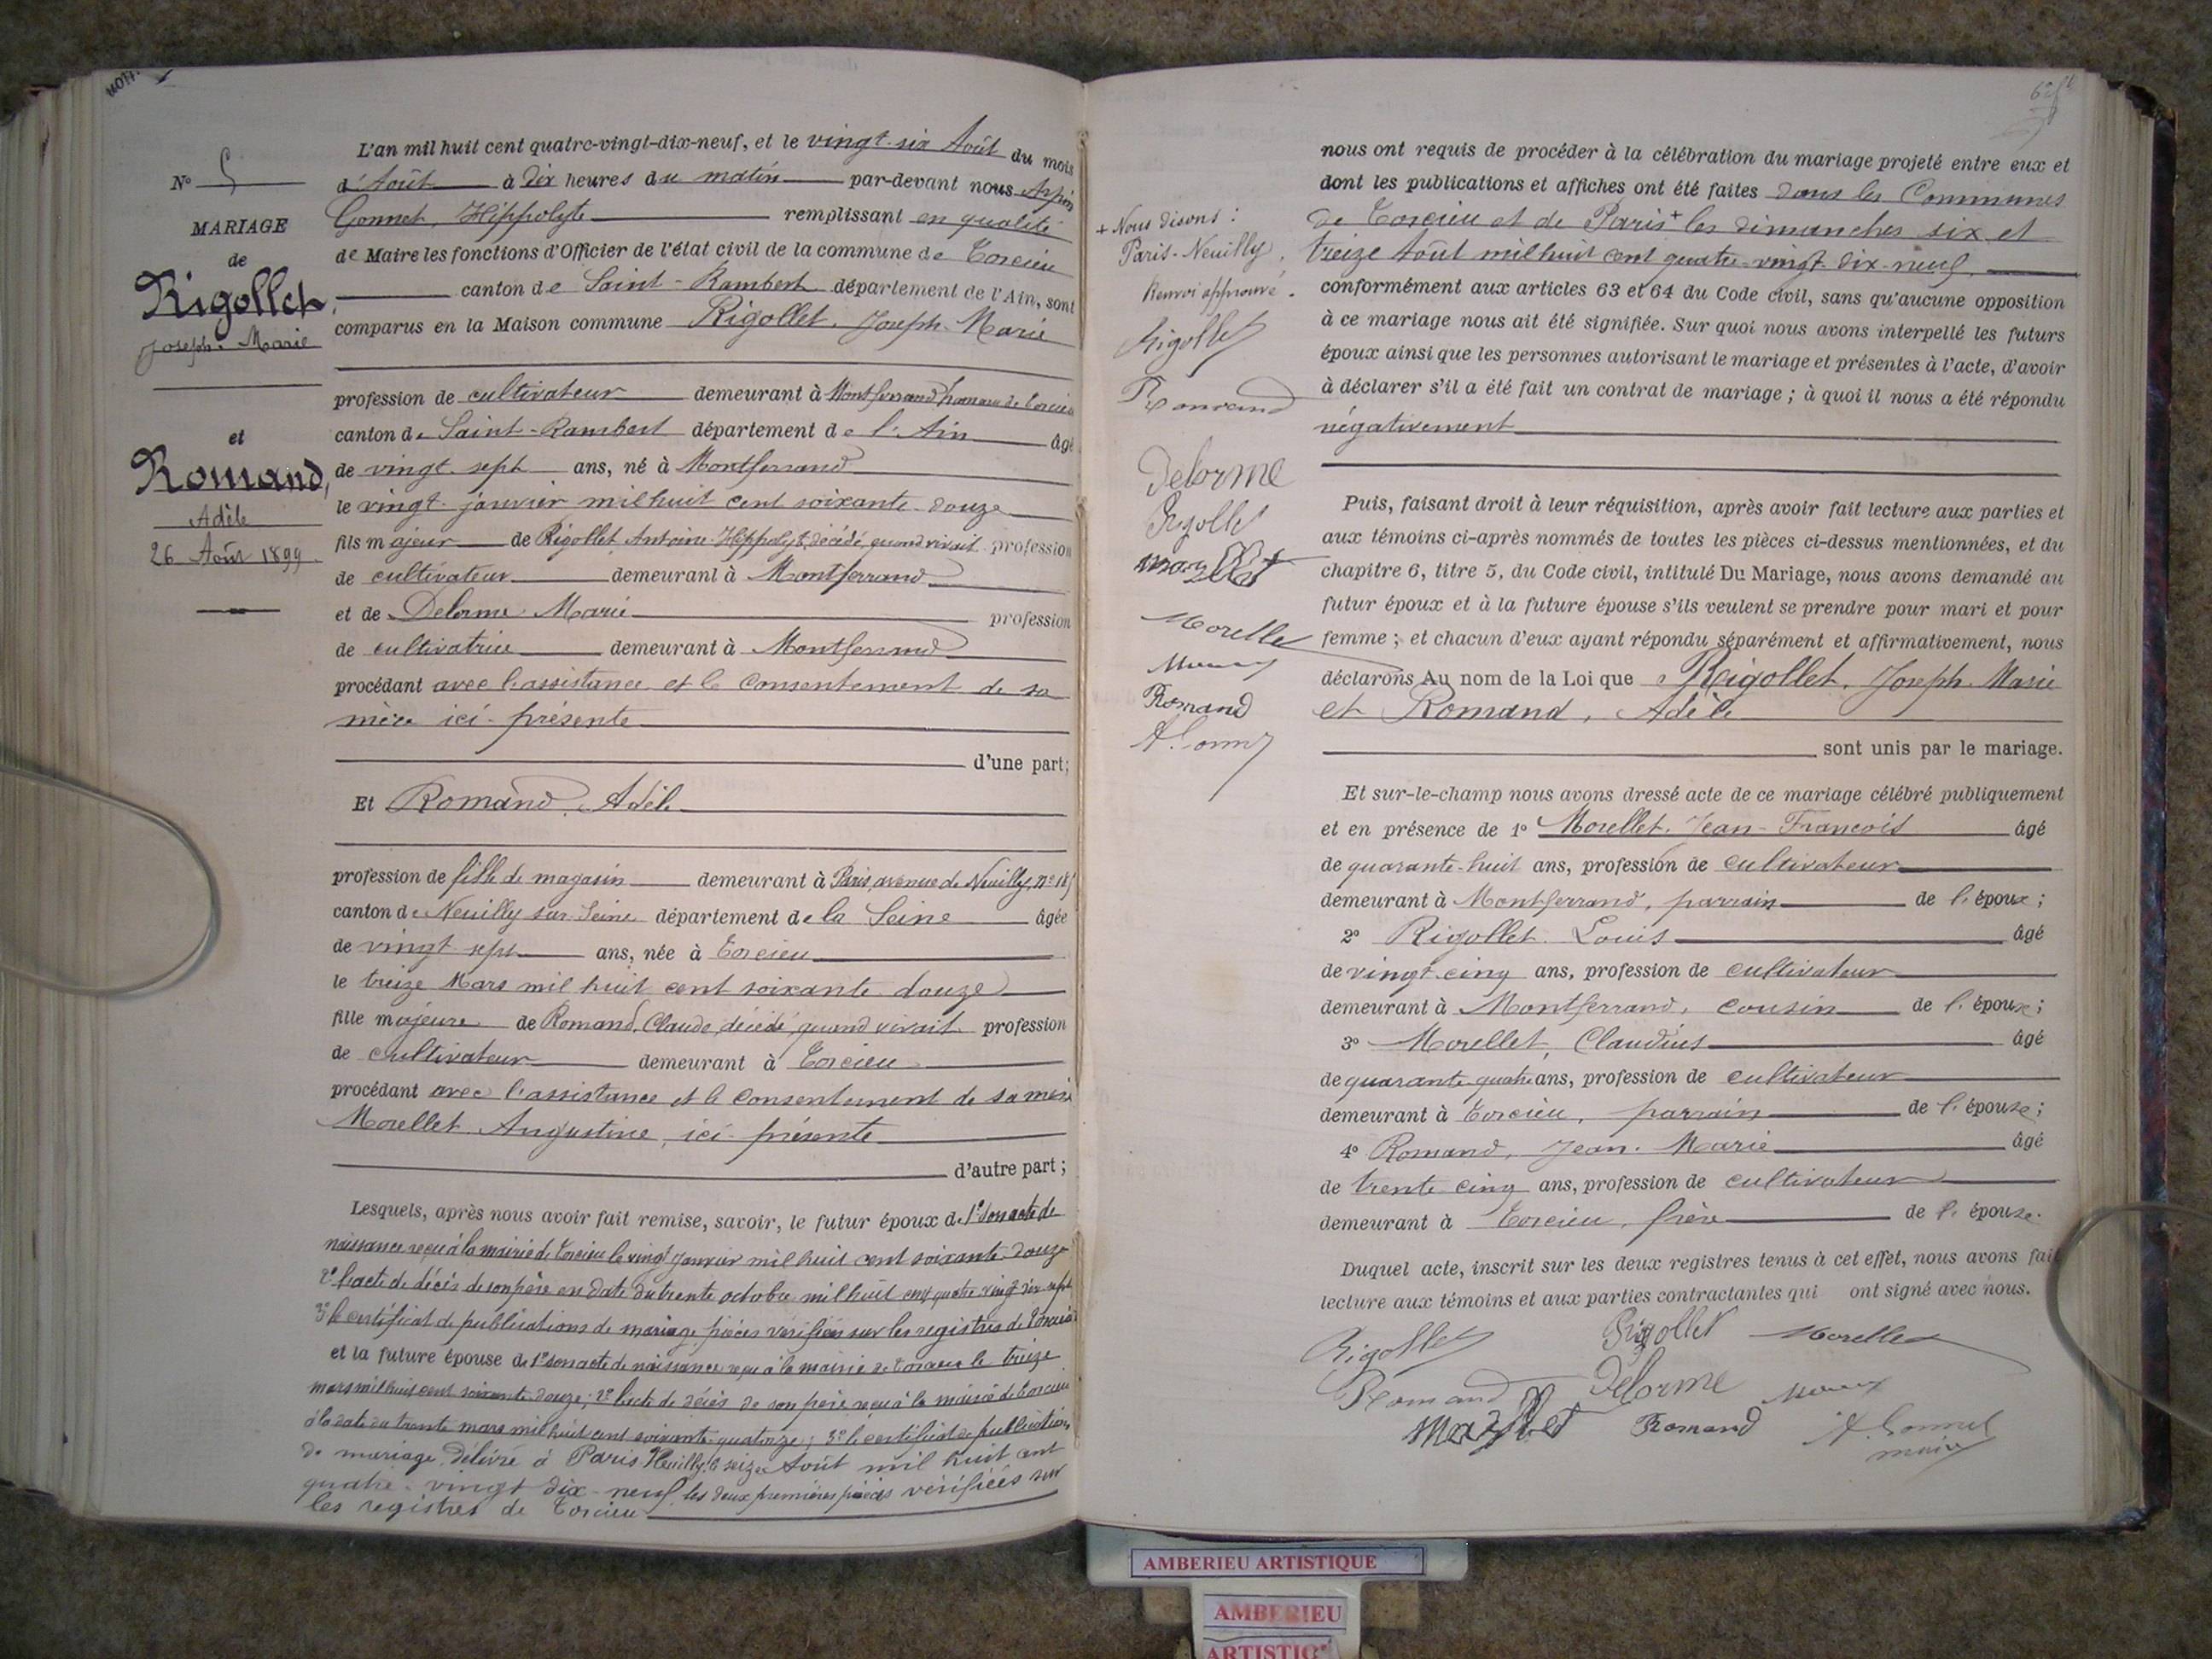 N° 5
MARIAGE
de
Rigollet,
Joseph-Marie
et
Romand,
Adèle
26 Août 1899
L'an mil huit cent quatre-vingt-dix-neuf, et le vingt-six Août du mois
d'Août à dix heures du matin par-devant nous
Gonnet, Hippolyte remplissant en qualité
de Maire les fonctions d'Officier de l'état civil de la commune de Torcieu
canton de Saint-Rambert département de l'Ain, sont
comparus en la Maison commune Rigollet, Joseph-Marie
profession de cultivateur demeurant à Montferrand hameau de Torcieu
canton de Saint-Rambert département de l'Ain âgé
de vingt-sept ans, né à Montferrand
le vingt janvier mil huit cent soixante-douze
fils majeur de Rigollet Antoine-Hippolyte, décédé, quand vivait profession
de cultivateur demeurant à Montferrand
et de Delorme Marie profession
de cultivatrice demeurant à Montferrand
procédant avec l'assistance et le consentement de sa
mère ici-présente
d'une part;
Et Romand, Adèle
profession de fille de magasin demeurant à Paris, avenue de Neuilly, n°
canton de Neuilly sur Seine département de la Seine âgée
de vingt-sept ans, née à Torcieu
le treize Mars mil huit cent soixante-douze
fille majeure de Romand, Claude, décédé, quand vivait profession
de cultivateur demeurant à Torcieu
procédant avec l'assistance et le consentement de sa mère
Morellet Augustine, ici-présente
d'autre part;
Lesquels, après nous avoir fait remise, savoir, le futur époux de 1° son acte de
naissance reçu à la mairie de Torcieu le vingt Janvier mil huit cent soixante-douze
2° l'acte de décès de son père en date du trente octobre mil huit cent quatre vingt dix sept
3° le certificat de publications de mariage, pièces vérifiées sur les registres de Torcieu
et la future épouse de 1° son acte de naissance reçu à la mairie de Torcieu le treize
mars mil huit cent soixante-douze; 2° l'acte de décès de son père reçu à la mairie de Torcieu
à la date du trente mars mil huit cent soixante-quatorze; 3° le certificat de publication
de mariage délivré à Paris-Neuilly le seize Août mil huit cent
quatre-vingt dix-neuf, les deux premières pièces vérifiées sur
les registres de Torcieu
+ Nous disons :
Paris-Neuilly.
Renvoi approuvé.
Rigollet
Romand
Delorme
Rigollet
Morellet
Romand
nous ont requis de procéder à la célébration du mariage projeté entre eux et
dont les publications et affiches ont été faites dans les Communes
de Torcieu et de Paris + les dimanches six et
treize Août mil huit cent quatre-vingt-dix-neuf,
conformément aux articles 63 et 64 du Code civil, sans qu'aucune opposition
à ce mariage nous ait été signifiée. Sur quoi nous avons interpellé les futurs
époux ainsi que les personnes autorisant le mariage et présentes à l'acte, d'avoir
à déclarer s'il a été fait un contrat de mariage; à quoi il nous a été répondu
négativement
Puis, faisant droit à leur réquisition, après avoir fait lecture aux parties et
aux témoins ci-après nommés de toutes les pièces ci-dessus mentionnées, et du
chapitre 6, titre 5, du Code civil, intitulé Du Mariage, nous avons demandé au
futur époux et à la future épouse s'ils veulent se prendre pour mari et pour
femme; et chacun d'eux ayant répondu séparément et affirmativement, nous
déclarons Au nom de la Loi que Rigollet, Joseph-Marie
et Romand, Adèle
sont unis par le mariage.
Et sur-le-champ nous avons dressé acte de ce mariage célébré publiquement
et en présence de 1° Morellet, Jean-François âgé
de quarante-huit ans, profession de cultivateur
demeurant à Montferrand, parrain de l'époux;
2° Rigollet Louis âgé
de vingt-cinq ans, profession de cultivateur
demeurant à Montferrand, cousin de l'époux;
3° Morellet, Claudius âgé
de quarante-quatre ans, profession de cultivateur
demeurant à Torcieu, parrain de l'épouse;
4° Romand, Jean-Marie âgé
de trente cinq ans, profession de cultivateur
demeurant à Torcieu, frère de l'épouse.
Duquel acte, inscrit sur les deux registres tenus à cet effet, nous avons fait
lecture aux témoins et aux parties contractantes qui ont signé avec nous.
Rigollet Rigollet Morellet
Romand Delorme
Romand H. Gonnet
maire
AMBERIEU ARTISTIQUE
AMBERIEU
ARTISTIQ